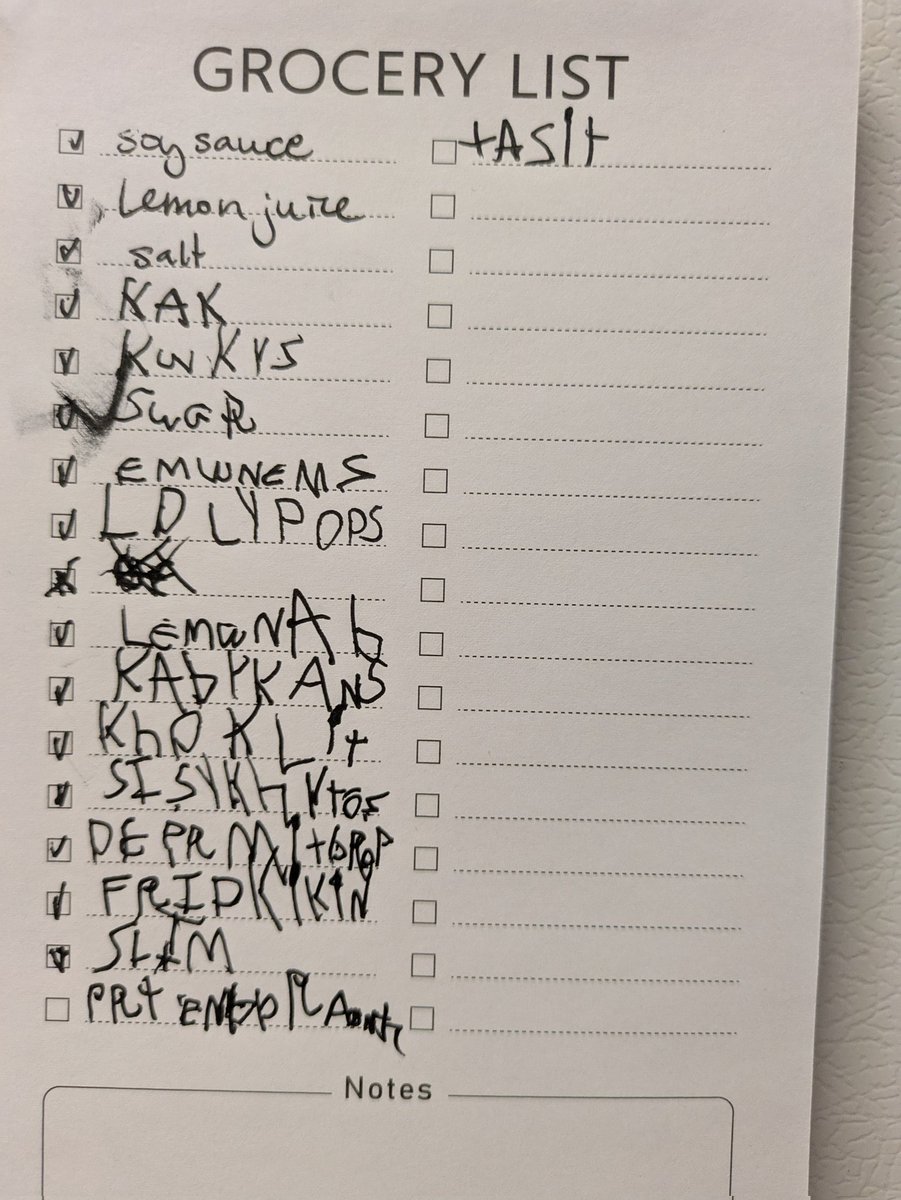 GROCERY LIST
soy sauce
Lemon juice
salt
KAK
KWKYS
SWGR
EMWNEMS
LDLYPOPS
LEMWNAb
KAbYKANS
KhOKLit
SISYKh,YtOS
DEPRMItbROP
FRIDKIKIN
SLIM
PRT
tASIt
Notes